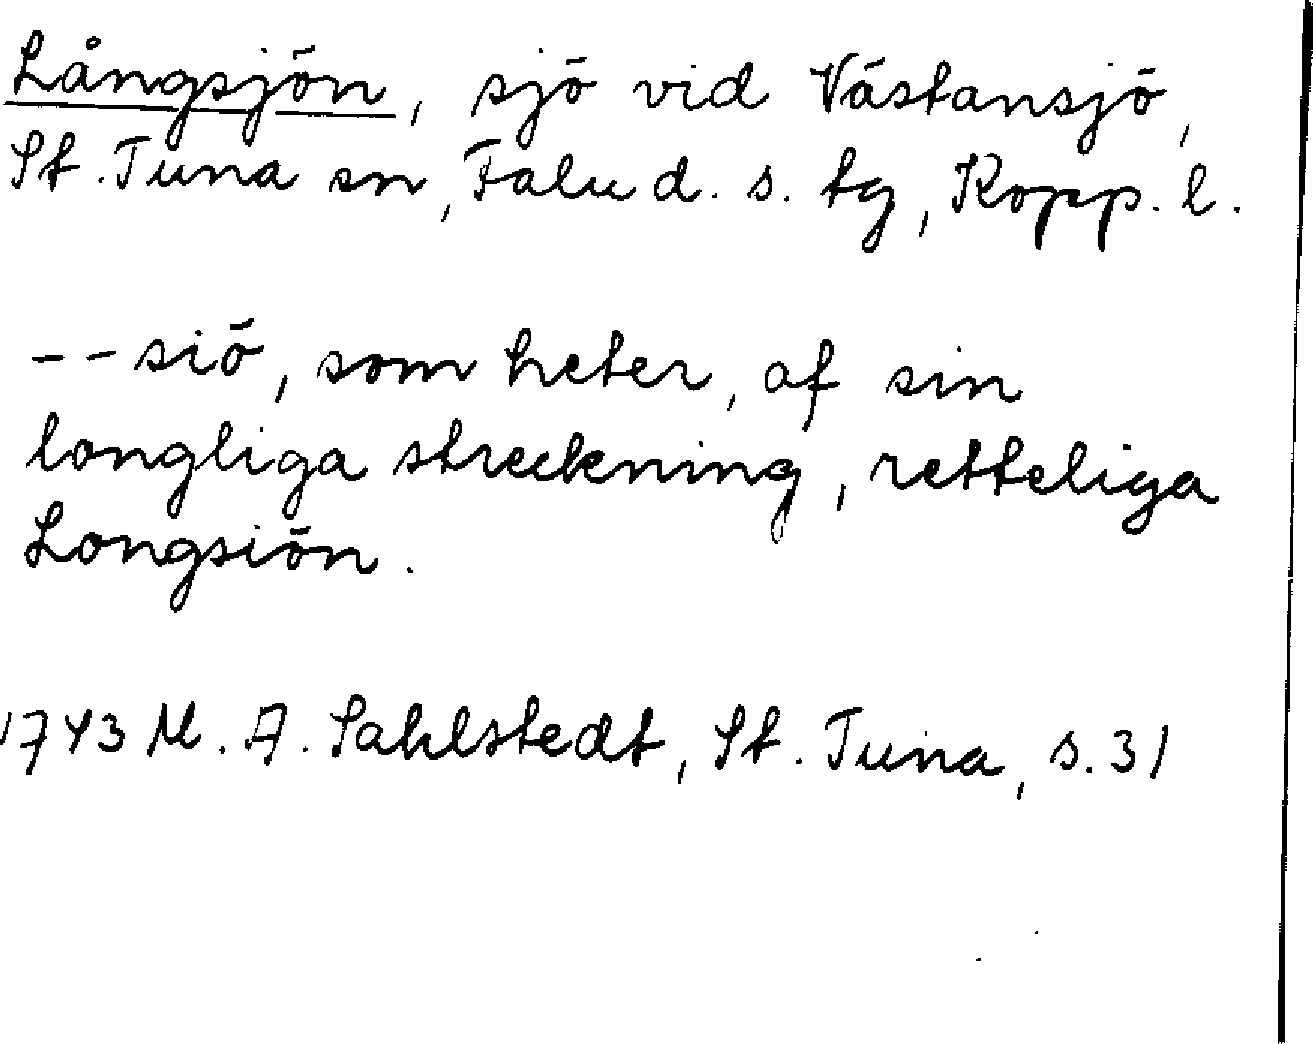 Långsjön, sjö vid Västansjö,
St. Tuna sn, Falu d. s. tg, Kopp. l.
-- siö, som heter, af sin
longliga streckning, retteliga
Longsiön.
1743 M. A. Sahlstedt, St. Tuna, s. 31